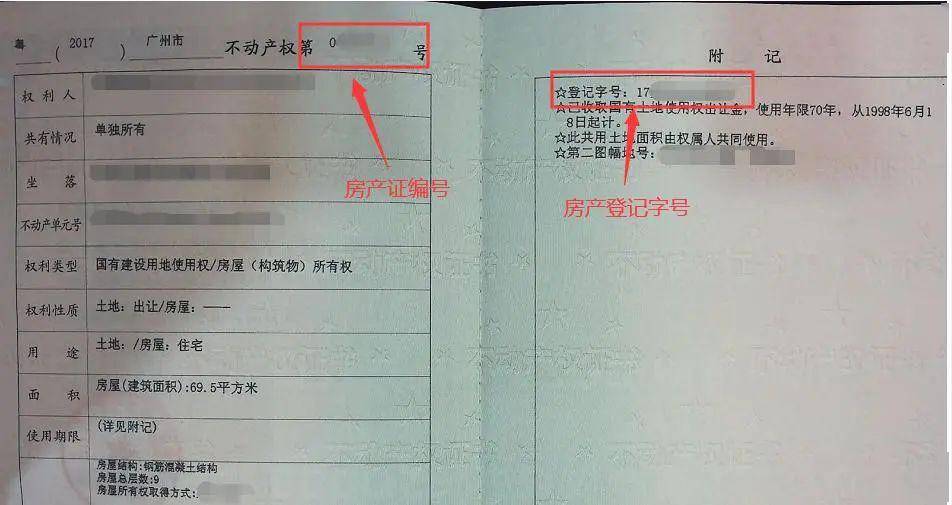 粤(2017)广州市 不动产权第0 号
权利人
共有情况 单独所有
坐落
不动产单元号
权利类型 国有建设用地使用权/房屋（构筑物）所有权
权利性质 土地：出让/房屋：——
用途 土地：/房屋：住宅
面积 房屋(建筑面积):69.5平方米
使用期限 (详见附记)
房屋结构:钢筋混凝土结构
房屋总层数:9
房屋所有权取得方式:
房产证编号
附记
☆登记字号：17
☆已收取国有土地使用权出让金，使用年限70年，从1998年6月1
8日起计。
☆此共用土地面积由权属人共同使用。
☆第二图幅地号：
房产登记字号